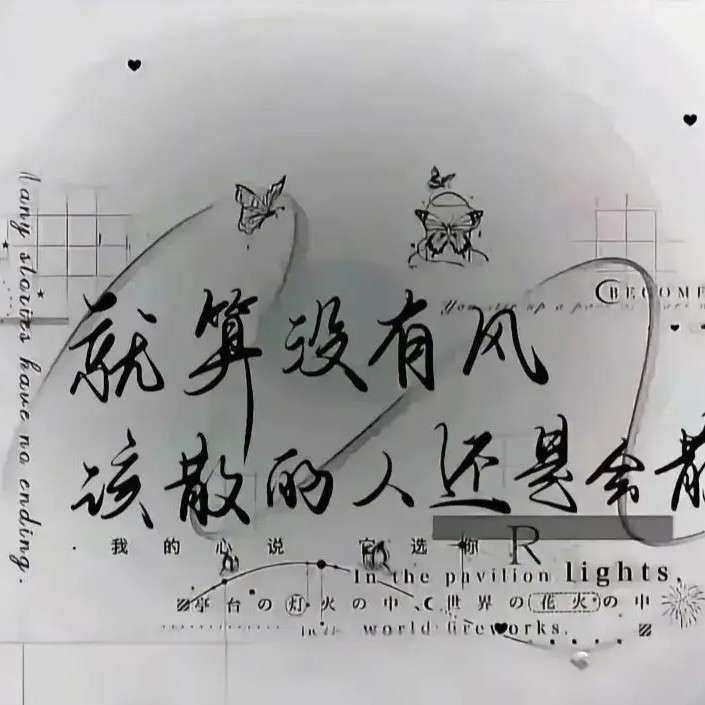 any stories have no ending.
BECOME
就算没有风
该散的人还是会散
我的心说 它选你
R
In the pavilion lights,
亭台の灯火の中、世界の花火の中
world fireworks.